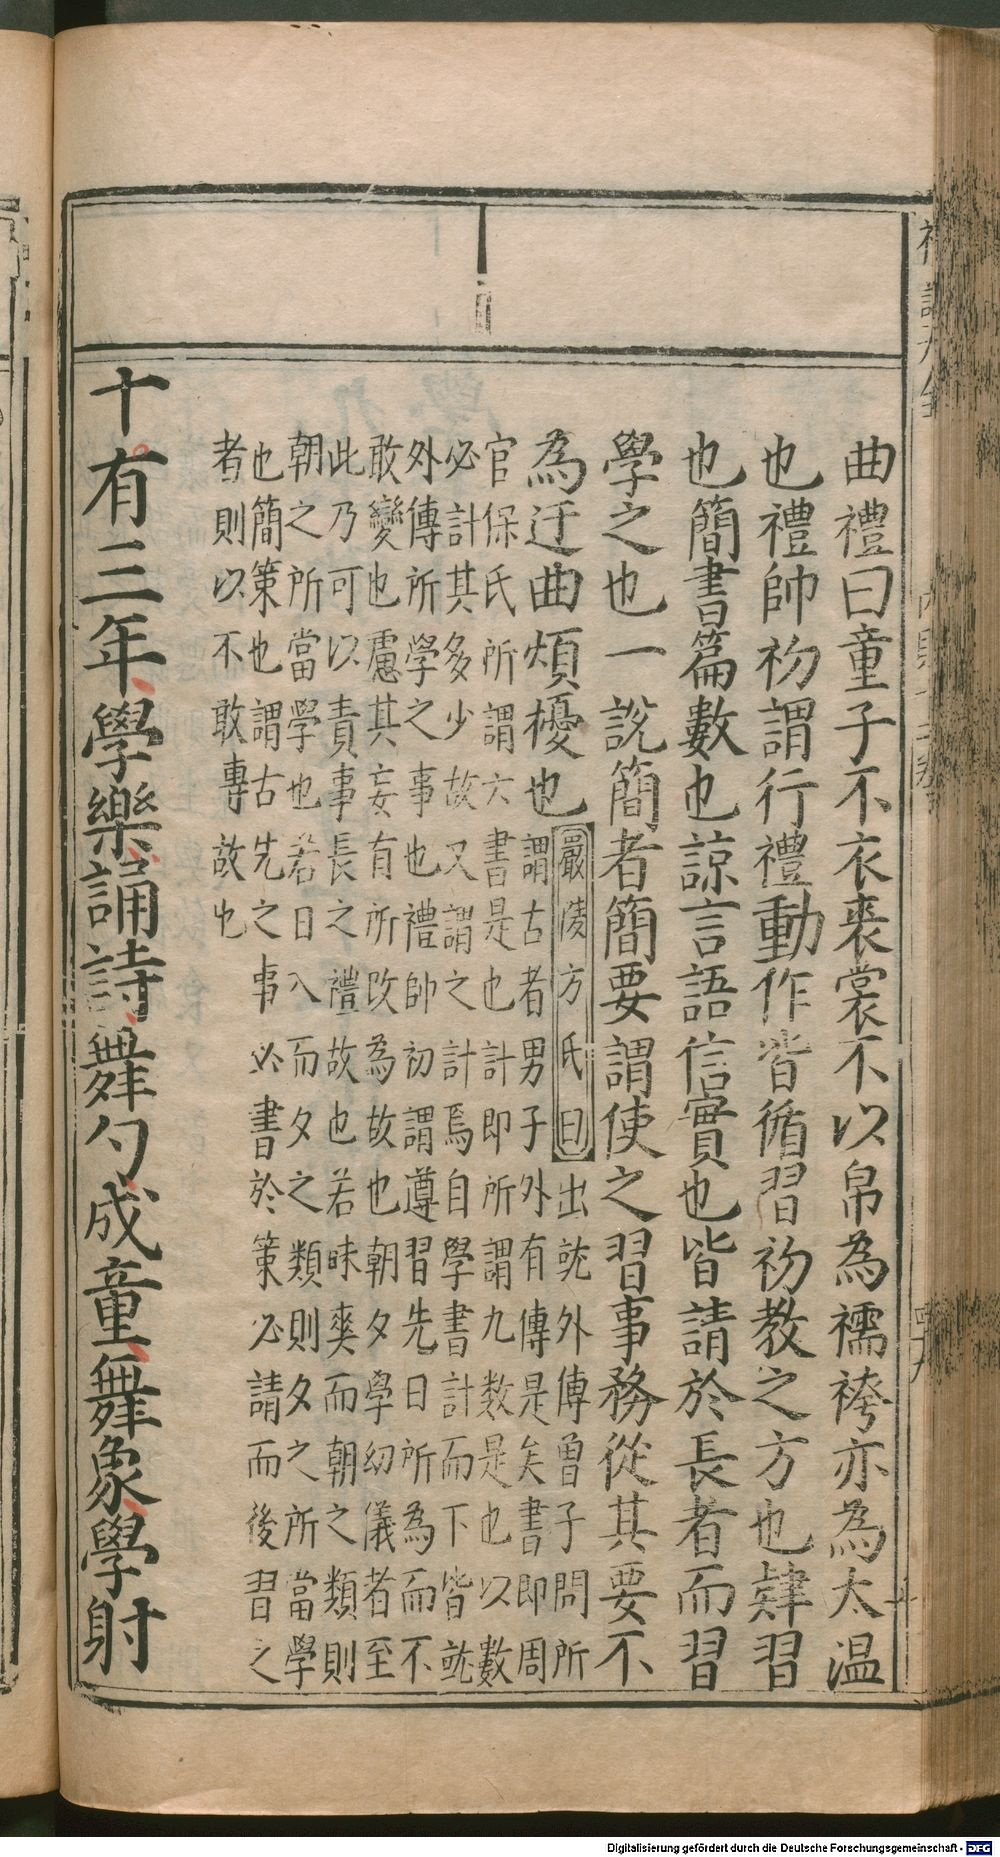 曲禮曰童子不衣裘裳不以帛為襦袴亦為太溫
也禮帥初謂行禮動作皆循習初教之方也肄習
也簡書篇數也諒言語信實也皆請於長者而習
學之也一說簡者簡要謂使之習事務從其要不
為迂曲煩擾也
嚴陵方氏曰出就外傳曾子問所
謂古者男子外有傳是矣書即周
官保氏所謂六書是也計即所謂九數是也以數
必計其多少故又謂之計焉自學書計而下皆就
外傳所學之事也禮帥初謂遵習先日所為而不
敢變也慮其妄有所改為故也朝夕學幼儀者至
此乃可以責事長之禮故也若昧爽而朝之類則
朝之所當學也若日入而夕之類則夕之所當學
也簡策也謂古先之事必書於策必請而後習之
者則以不敢專故也
十有三年學樂誦詩舞勺成童舞象學射
Digitalisierung gefördert durch die Deutsche Forschungsgemeinschaft - DFG